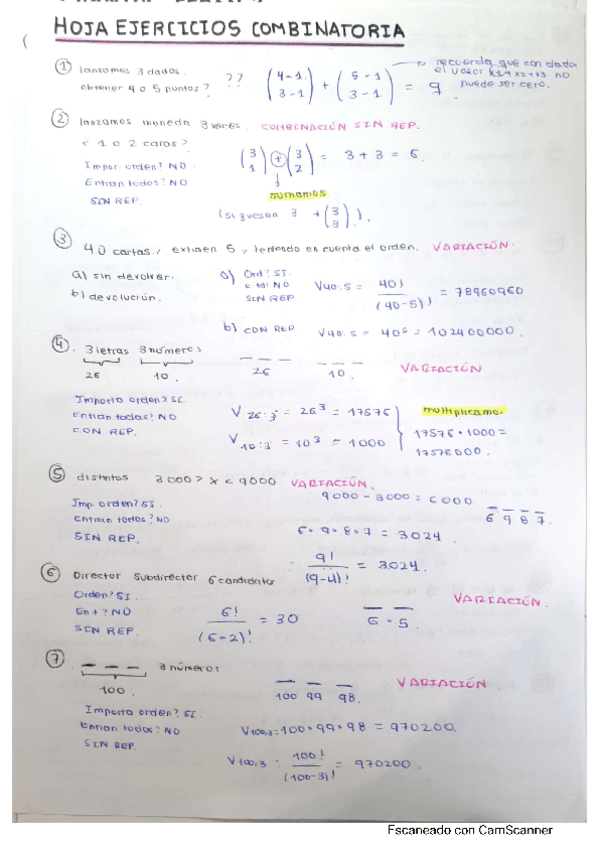 HOJA EJERCICIOS COMBINATORIA
① lanzamos 3 dados.
obtener 4 o 5 puntos?
?? (4-1 / 3-1) + (5-1 / 3-1) = 9
→ recuerda que con dada
el valor x1+x2+x3 no
puede ser cero.
② lanzamos moneda 3 veces. COMBINACIÓN SIN REP.
< 1 o 2 caras?
Impor orden? NO.
Entran todos? NO
SIN REP.
(3 / 1) + (3 / 2) = 3 + 3 = 6.
sumamos
(si guesan 3 + (3 / 3)).
③ 40 cartas, extraen 5, teniendo en cuenta el orden. VARIACIÓN.
a) sin devolver.
b) devolución.
a) Ord? SI.
E tdi NO
SIN REP
V40:5 = 40! / (40-5)! = 78960960
b) CON REP V40:5 = 40⁵ = 102400000.
④. 3 letras 3 números
26 10.
26 10. VARIACIÓN
Importa orden? SI.
Entran todos? NO
CON REP.
V 26:3 = 26³ = 17576
V 10:3 = 10³ = 1000
multiplicamo.
17576 · 1000 =
17576000.
⑤ distintos 3000 > x < 9000 VARIACIÓN.
Imp. orden? SI.
Entran todos? NO
SIN REP.
9000 - 3000 = 6000
6 9 8 7.
6 · 9 · 8 · 7 = 3024.
9! / (9-4)! = 3024.
⑥ Director Subdirector 6 candidato
Orden? SI.
Ent? NO
SIN REP.
6! / (6-2)! = 30
6 · 5.
VARIACIÓN.
⑦. 3 números
100.
100 99 98.
VARIACIÓN
Importa orden? SI.
Entran todos: NO
SIN REP.
V100,3 = 100 · 99 · 98 = 970200.
V100,3 : 100! / (100-3)! = 970200.
Escaneado con CamScanner